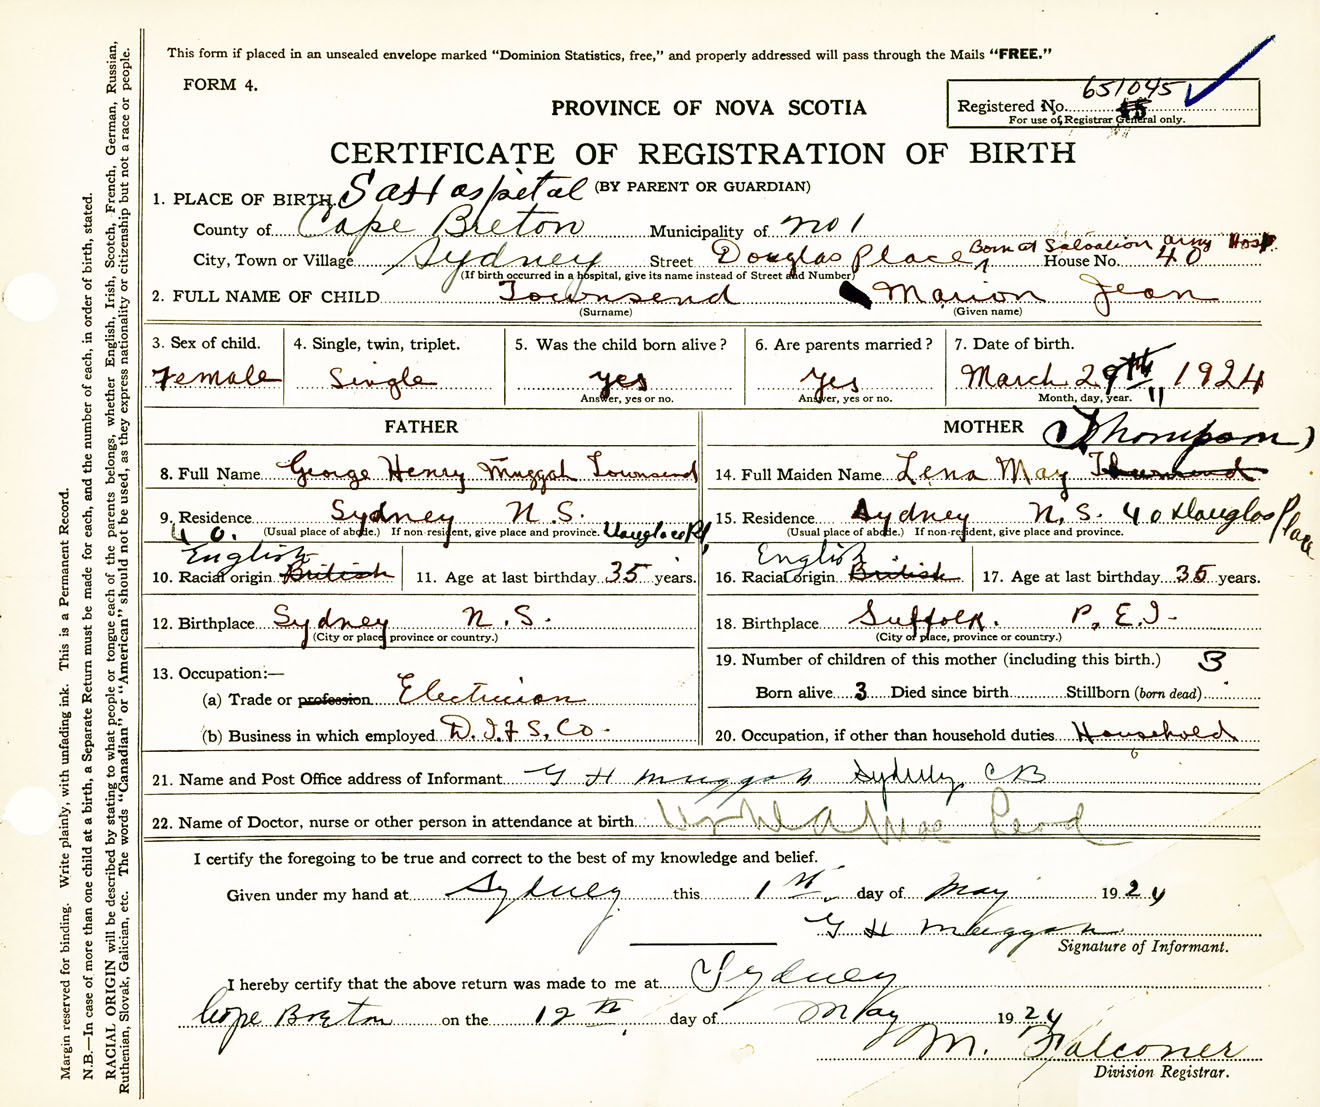 This form if placed in an unsealed envelope marked "Dominion Statistics, free," and properly addressed will pass through the Mails "FREE."
FORM 4.
PROVINCE OF NOVA SCOTIA
Registered No. 651045
For use of Registrar General only.
CERTIFICATE OF REGISTRATION OF BIRTH
(BY PARENT OR GUARDIAN)
1. PLACE OF BIRTH. SA Hospital
County of Cape Breton Municipality of No 1
City, Town or Village Sydney Street Douglas Place Born at Salvation Army Hosp. House No. 40
(If birth occurred in a hospital, give its name instead of Street and Number)
2. FULL NAME OF CHILD Townsend Marion Jean
(Surname) (Given name)
3. Sex of child. 4. Single, twin, triplet. 5. Was the child born alive? 6. Are parents married? 7. Date of birth.
Female Single yes Yes March 29th 1924
Answer, yes or no. Answer, yes or no. Month, day, year. "
FATHER MOTHER (Thompson)
8. Full Name George Henry Muggah Townsend 14. Full Maiden Name Lena May
9. Residence Sydney N.S. 15. Residence Sydney N.S. 40 Douglas Place
40. (Usual place of abode.) If non-resident, give place and province. Douglas Pl. (Usual place of abode.) If non-resident, give place and province.
English English
10. Racial origin British 11. Age at last birthday 35 years. 16. Racial origin British 17. Age at last birthday 35 years.
12. Birthplace Sydney N.S. 18. Birthplace Suffolk. P.E.I.
(City or place, province or country.) (City or place, province or country.)
13. Occupation:— 19. Number of children of this mother (including this birth.) 3
(a) Trade or profession Electrician Born alive 3 Died since birth Stillborn (born dead)
(b) Business in which employed D.I.&S. Co. 20. Occupation, if other than household duties Household
21. Name and Post Office address of Informant G H Muggah Sydney, CB
22. Name of Doctor, nurse or other person in attendance at birth Mac Leod
I certify the foregoing to be true and correct to the best of my knowledge and belief.
Given under my hand at Sydney this 1st day of May 1924
G H Muggah
Signature of Informant.
I hereby certify that the above return was made to me at Sydney
Cape Breton on the 12th day of May 1924
M. Falconer
Division Registrar.
Margin reserved for binding. Write plainly, with unfading ink. This is a Permanent Record.
N.B.—In case of more than one child at a birth, a Separate Return must be made for each, and the number of each, in order of birth, stated.
RACIAL ORIGIN will be described by stating to what people or tongue each of the parents belongs, whether English, Irish, Scotch, French, German, Russian,
Ruthenian, Slovak, Galician, etc. The words "Canadian" or "American" should not be used, as they express nationality or citizenship but not a race or people.